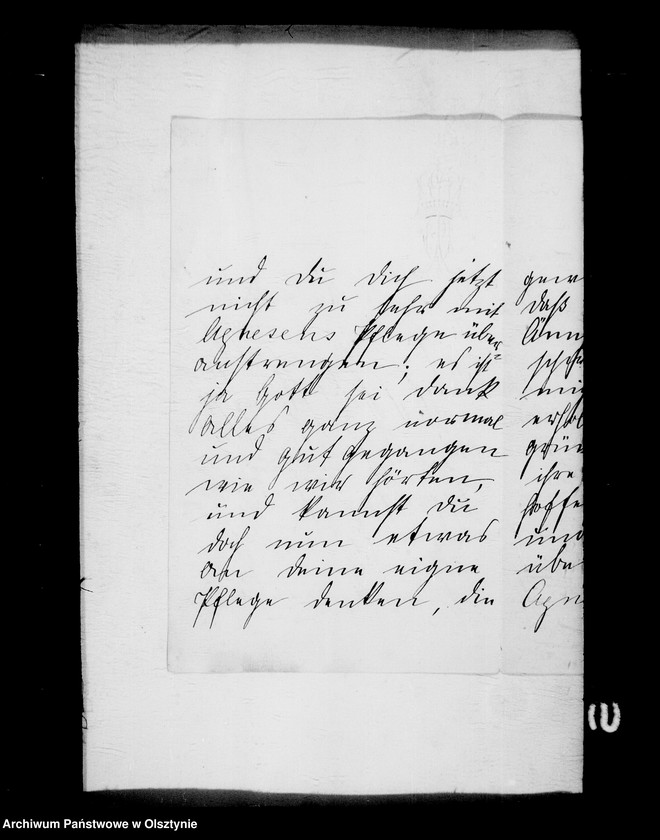 und du dich jetzt
nicht zu sehr mit
Agnesens Pflege über
anstrengen; es ist
ja Gott sei dank
alles ganz normal
und gut gegangen
wie wir hörten,
und kannst du
doch nun etwas
an deine eigne
Pflege denken, die
gew
daß
Änn
sch
erhol
grün
ihre
hoffe
und
übe
Agn
Archiwum Państwowe w Olsztynie